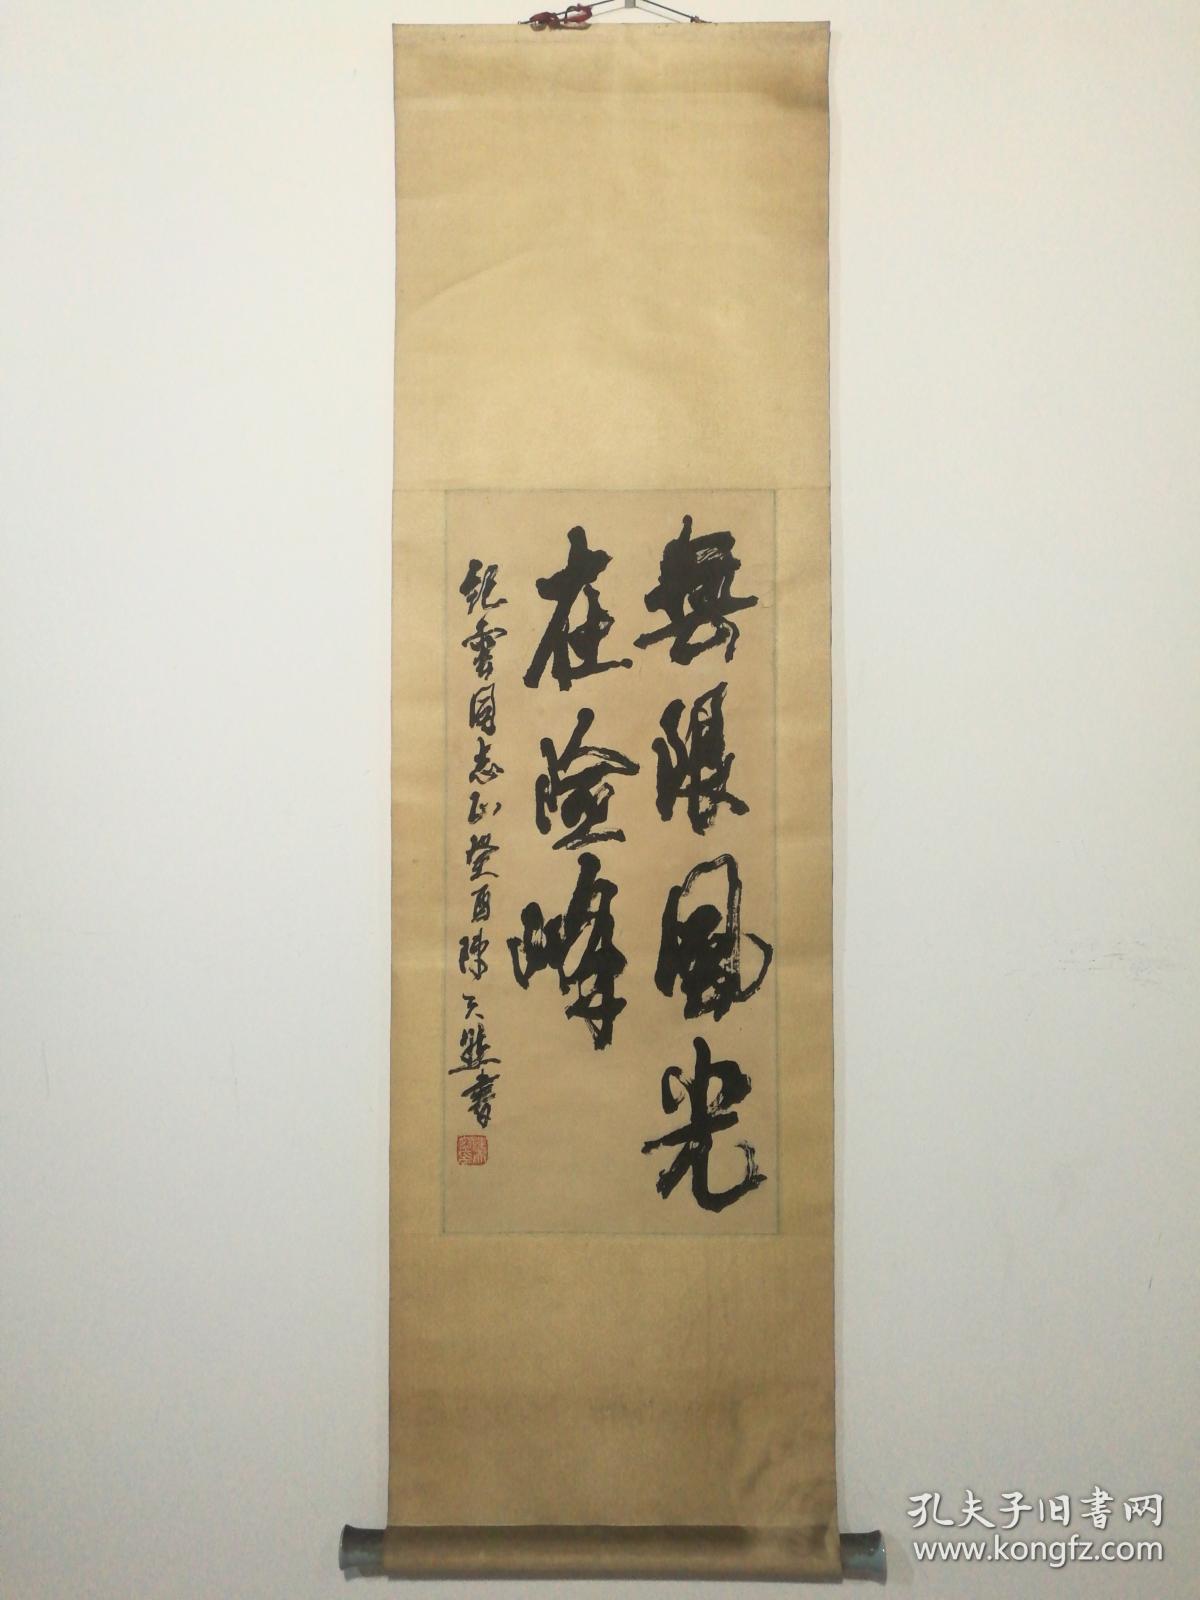 無限風光
在險峰
紀雲同志正癸酉陳天然書
孔夫子旧书网
www.kongfz.com